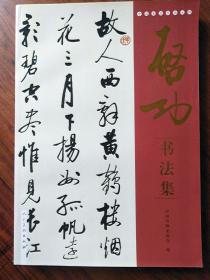 故人西辞黄鹤楼烟
花三月下扬州孤帆远
影碧空尽惟见长江
启功
书法集